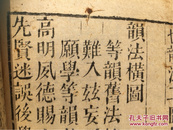 韻法橫圖
等韻舊法
難入玄
願學等韻
高明威德賜
先賢迷誤後